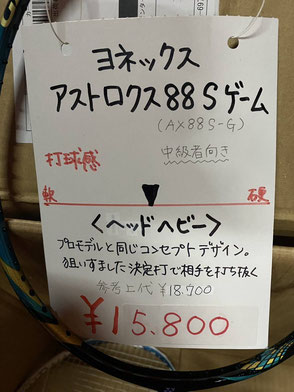 ヨネックス
アストロクス88Sゲーム
(AX88S-G)
打球感
中級者向き
軟 硬
〈ヘッドヘビー〉
プロモデルと同じコンセプトデザイン。
狙いすました決定打で相手を打ち抜く
参考上代 ¥18.700
¥15.800